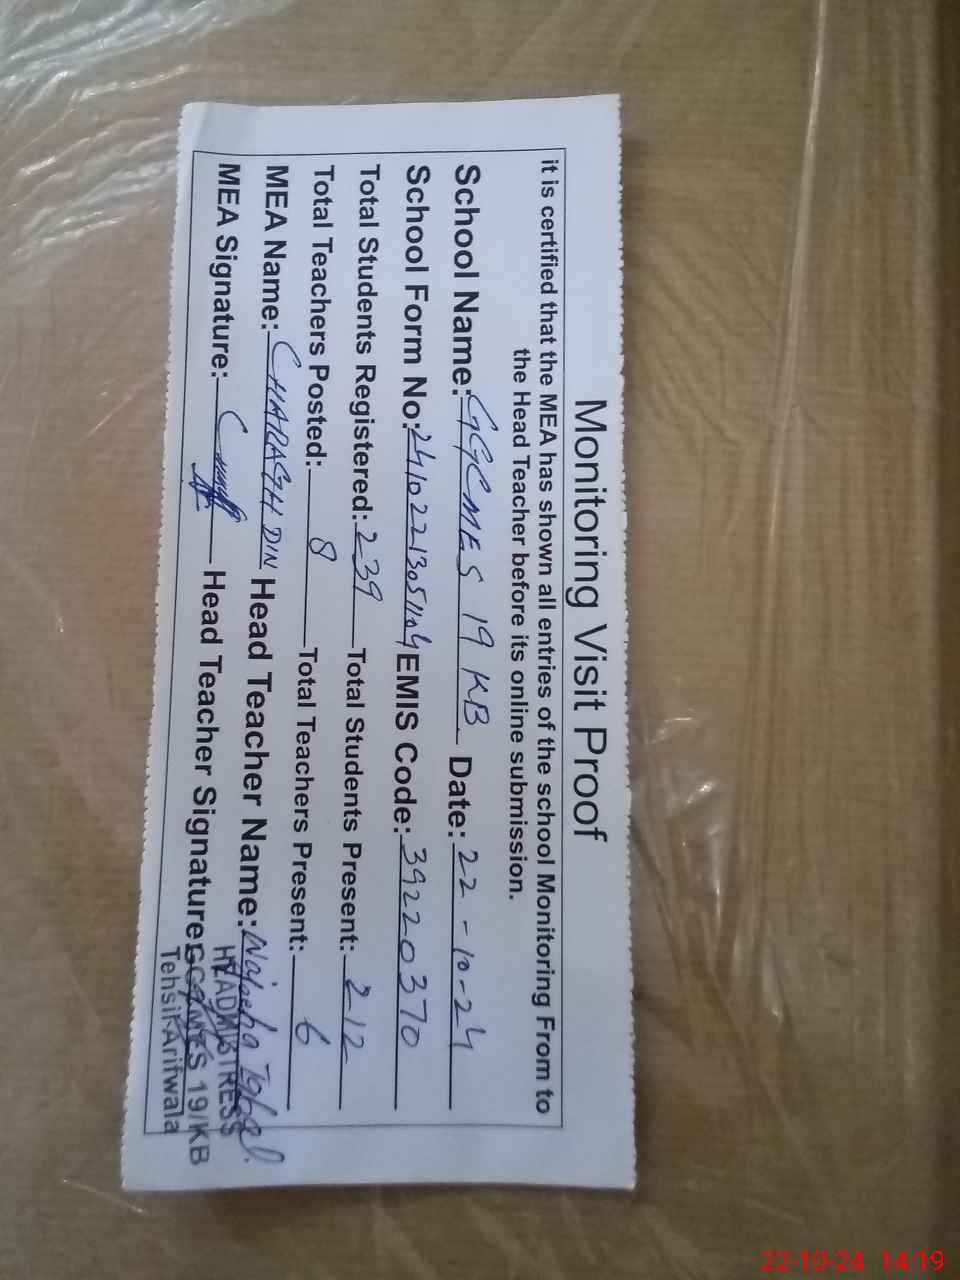 Monitoring Visit Proof
it is certified that the MEA has shown all entries of the school Monitoring From to
the Head Teacher before its online submission.
School Name: GGCMES 19 KB Date: 22-10-24
School Form No: EMIS Code: 39220370
Total Students Registered: 239 Total Students Present: 212
Total Teachers Posted: 8 Total Teachers Present: 6
MEA Name: CHARAGH DIN Head Teacher Name: Iqbal
MEA Signature: Head Teacher Signature:
HEADMISTRESS
GGCMES 19/KB
Tehsil Arifwala
22-10-24 14:19